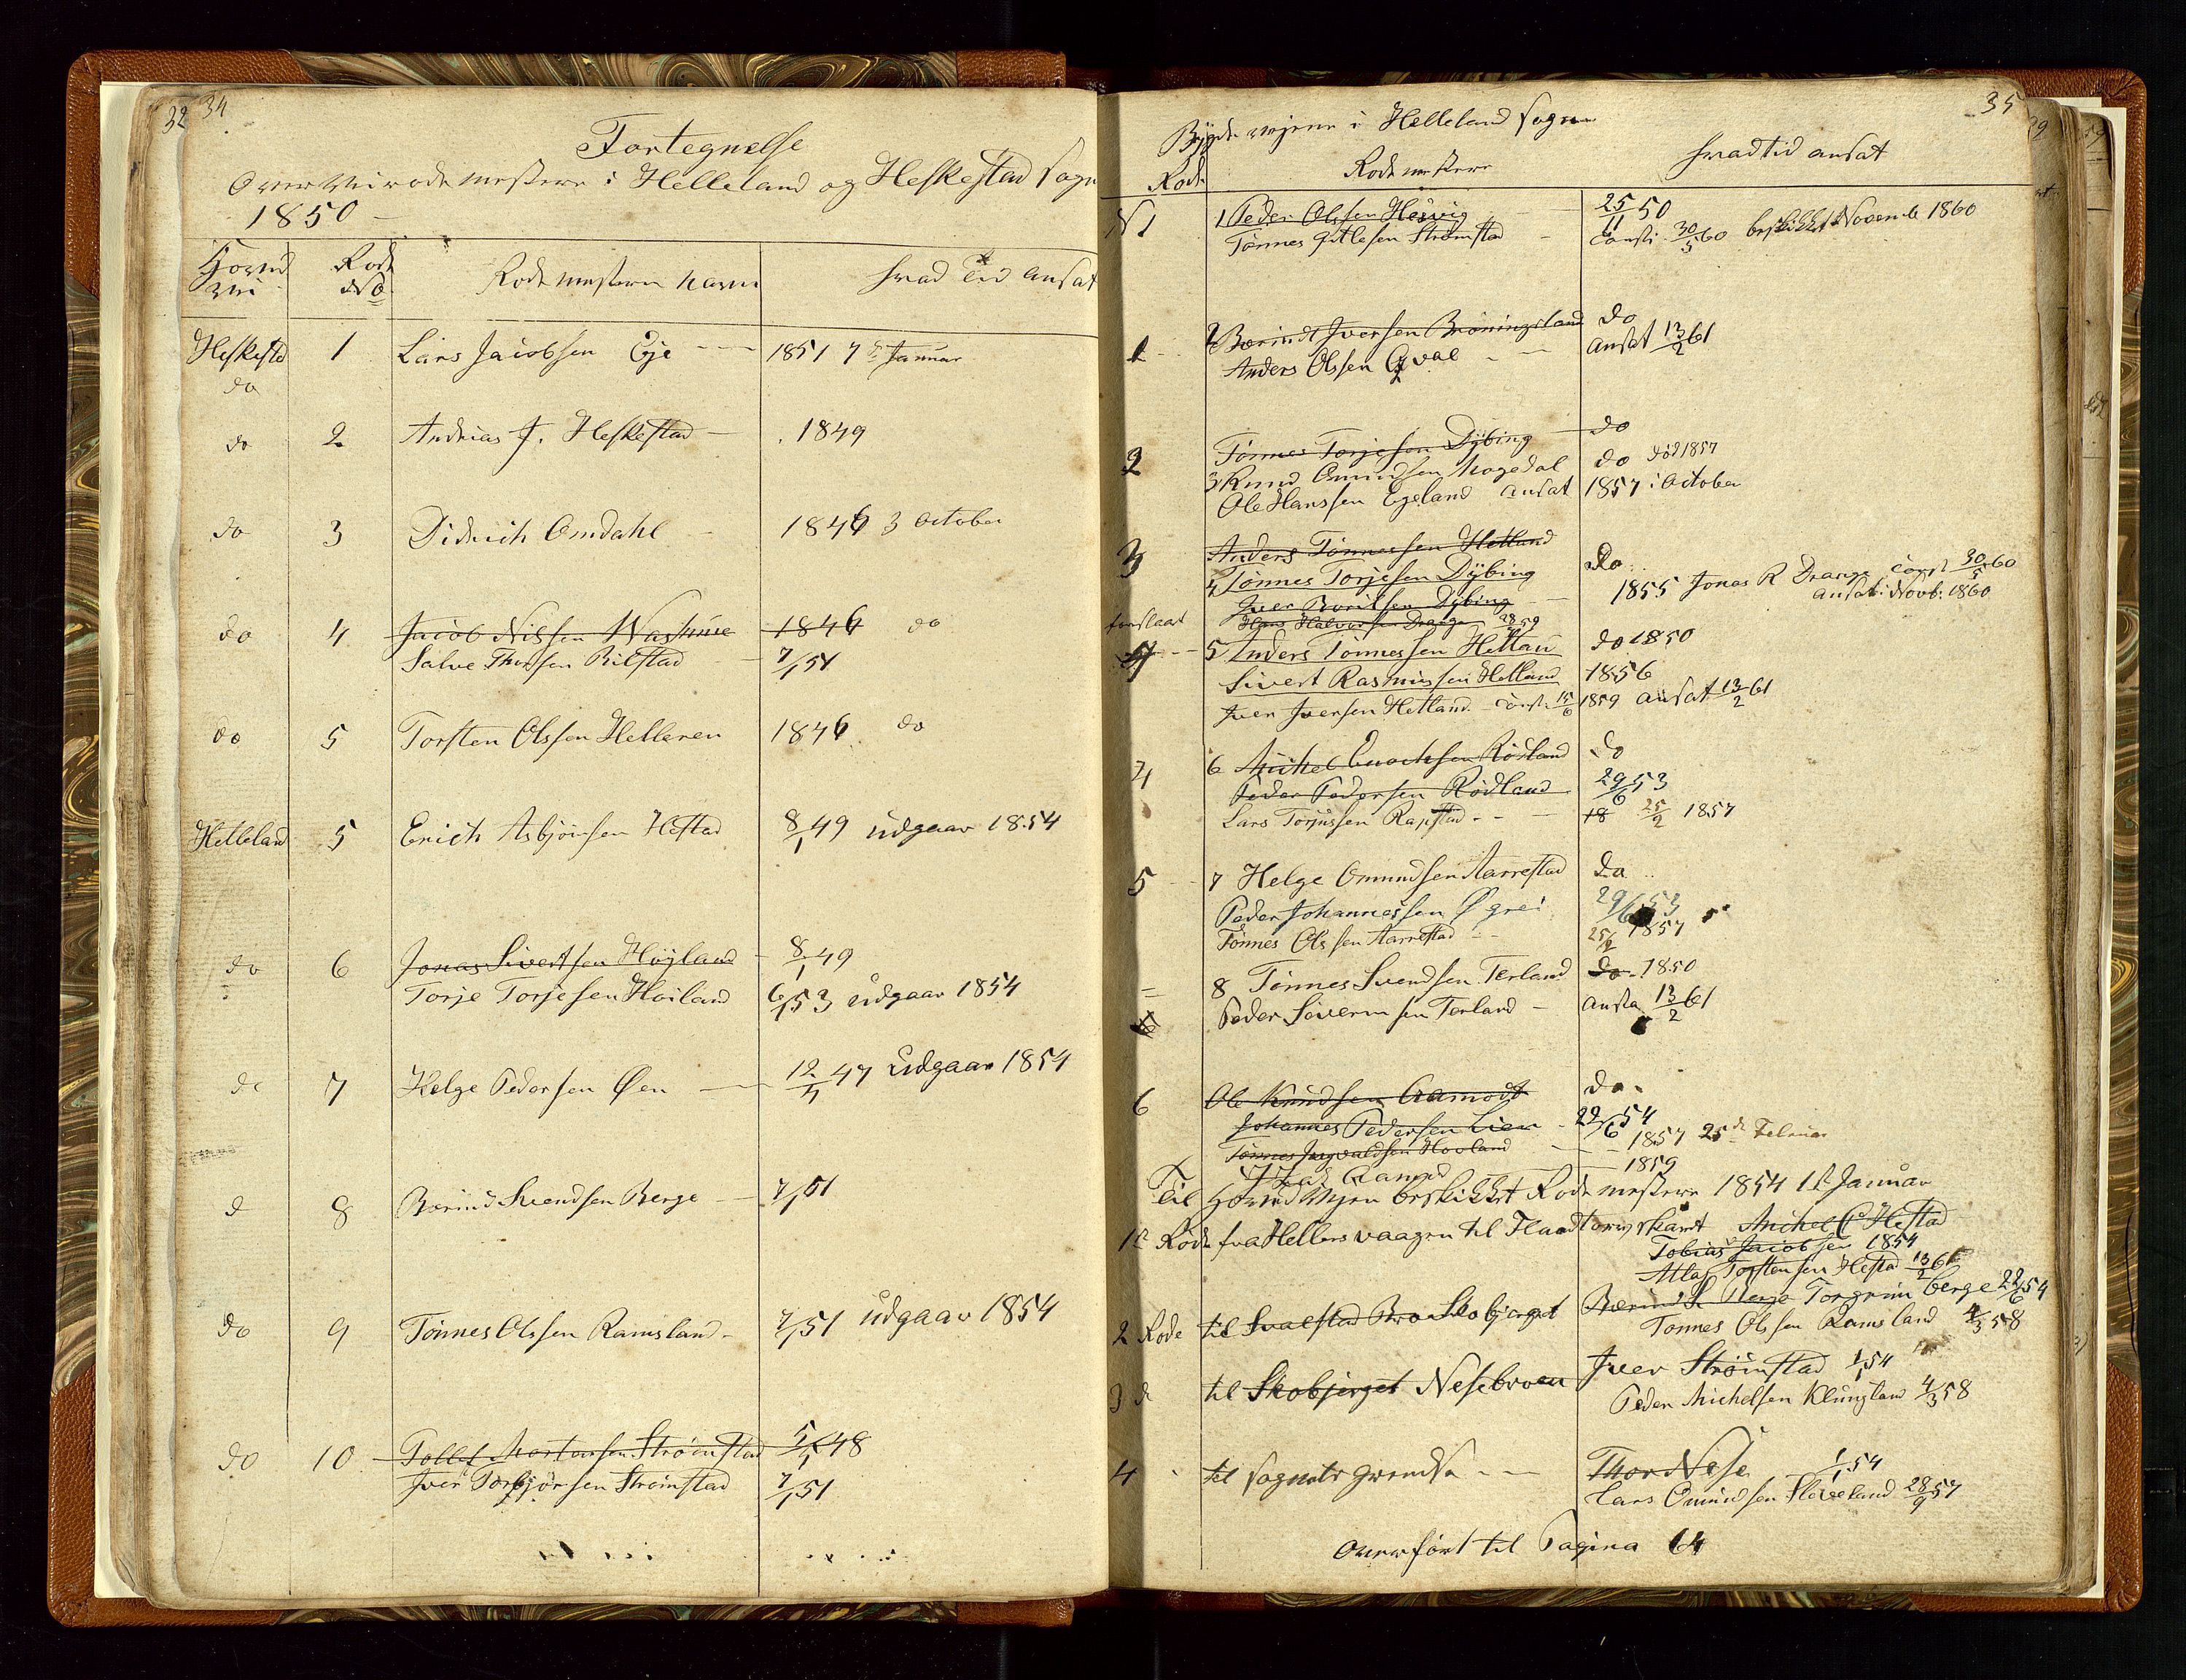 32 34
Fortegnelse
Over Veirodemestere i Helleland og Heskestad Sogn
1850 -
Hoved Rode Rodemesteren Navn hvad Tid ansat
Vei No
Heskestd 1 Lars Jacobsen Eje 1851 7de Januar
do
do 2 Andreas J. Heskestad 1849
do 3 Didrich Omdahl 1846 3 October
do 4 Jacob Nilsen Waskue 1846 do
Salve Thorsen Bilstad 7/1 51
do 5 Torsten Olssen Helleren 1846 do
Helleland 5 Erich Asbjørnsen Hestad 8/1 49 udgaar 1854
do 6 Jonas Sivertsen Højland 8/1 49
Torje Torjesen Hoiland 6/1 53 udgaar 1854
do 7 Helge Pedersen Øen 12/4 47 Udgaar 1854
d 8 Berind Svendsen Berge 7/1 51
do 9 Tønnes Olssen Ramsland 7/1 51 udgaar 1854
do 10 Tollef Mortensen Strømstad 5/1 48
Iver Torbjørsen Strømstad 7/1 51
35
Bygde vejene i Helleland Sogn
Rode Rodemestere hvad tid ansat
N 1 1 Peder Olssen Hesvig 25/11 50
Tønnes Gitlesen Strømstad Consti 30/5 60 beskikket Novemb 1860
1 2 Berindt Iversen Brøningsland do
Anders Olssen Qval ansat 13/2 61
2 Tønnes Torjesen Dybing do
3 Knud Omundsen Mogedal do død 1857
Ole Hanssen Egeland ansat 1857 i October
3 Anders Tønnessen Hetland do
4 Tønnes Torjesen Dybing 1855 Jonas R Drange const 30/5 60
Iver Boritsen Dybing ansat i Novb: 1860
Hans Halvorsen Drange 59
5 Anders Tønnessen Hetlan do 1850
Sivert Rasmussen Hetland 1856
Iver Iversen Hetland const 15/6 1859 ansat 13/2 61
4 6 Michel Enochsen Rødland do
Peder Pedersen Rødland 29/6 53
Lars Torjussen Rapstad 18 25/2 1857
5 7 Helge Omundsen Aarrestad do
Peder Johannessen Øgrei 29/6 53
Tønnes Olssen Aarrestad 25/2 1857
8 Tønnes Svendsen Terland do 1850
Peder Severinsen Terland ansa 13/2 61
6 Ole Knudsen Aamodt do
Johannes Pedersen Lien 22/6 54
Tønnes Ingvaldsen Hovland 1857 25de Februar
1859
Til Hovedvejen beskikket Rodemestere 1854 1st Januar
1e Rode fra Hellersvaagen til Michel C Hestad
Tobias Jacobsen 1854
Atlag Torstensen Hestad 13/2 61
2 Rode til Svalestad Bro Skobjerget Berind S Berge Torgrim Berge 22/6 54
Tonnes Olssen Ramsland 4/3 58
3 d til Skobjerget Nesebroen Iver Strømstad 1/1 54
Peder Michelsen Klungland 4/3 58
4 til Sognets Grendse Thor Nese 1/1 54
Lars Omundsen Sleveland 28/9 57
Overført til Pagina 64